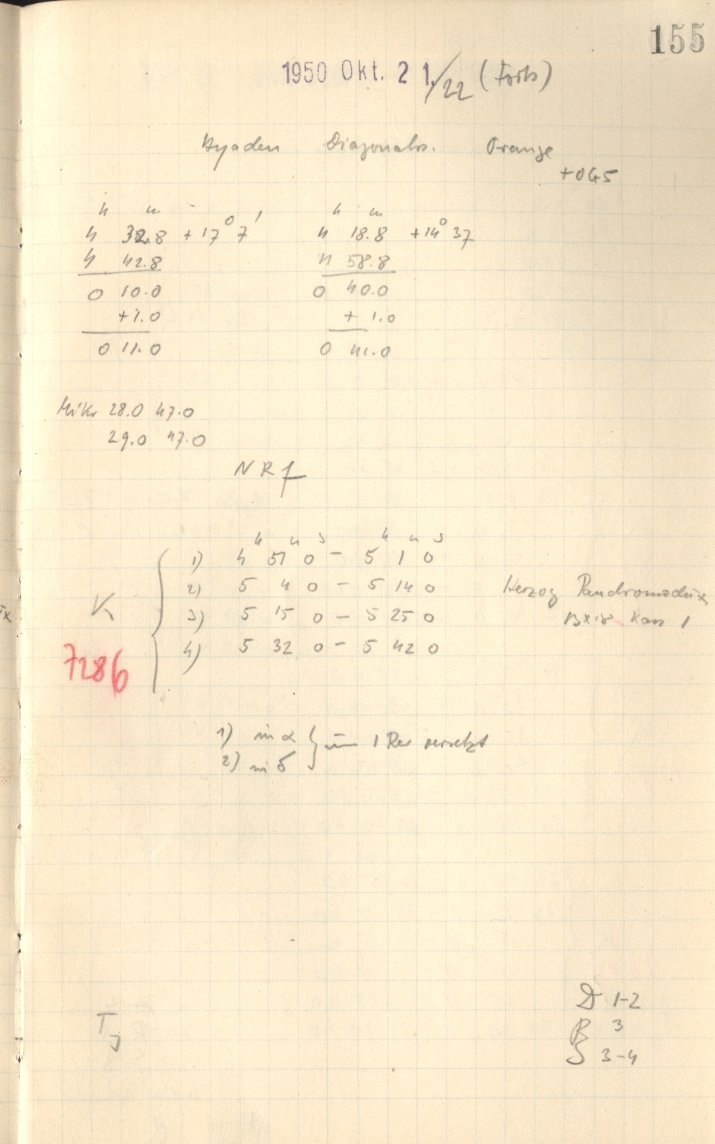 155
1950 Okt. 21./22 (Forts)
Hyaden Diagonalw. Orange
+045
h m h m
4 32.8 +17° 7' 4 18.8 +14° 37
4 42.8 4 58.8
0 10.0 0 40.0
+1.0 + 1.0
0 11.0 0 41.0
Mikr 28.0 47.0
29.0 47.0
NRf
h m s h m s
1) 4 51 0 – 5 1 0
2) 5 4 0 – 5 14 0
3) 5 15 0 – 5 25 0
4) 5 32 0 – 5 42 0
K
7286
Herzog
Kass 1
1) in α } um 1 Rev versetzt
2) in δ
D 1-2
R 3
S 3-4